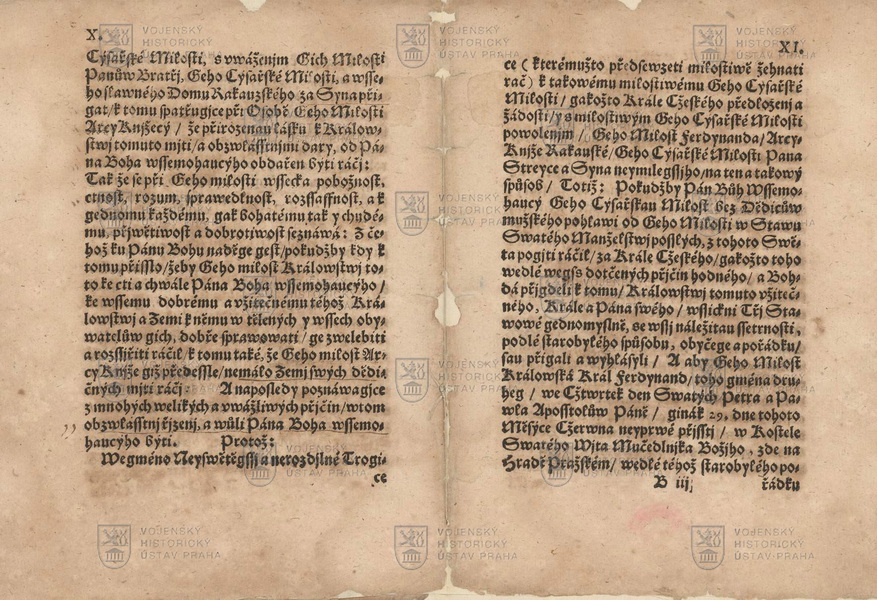 X.
Cýsařské Milosti, s vwáženjm Gich Milostí
Panůw Bratřj, Geho Cýsařské Milosti, a wsse-
ho slawného Domu Rakauzského za Syna při-
gat/ k tomu spatřugjce při Osobě Geho Milosti
Arcy Knjžecý / že přirozenau lásku k Králow-
stwj tomuto mjti / a obzwlásstnjmi dary, od Pá-
na Boha wssemohaucýho obdařen býti ráčj:
Tak že se při Geho milosti wssecka pobožnost,
ctnost, rozum, sprawedlnost, rozssaffnost, a k
gednomu každému, gak bohatému tak y chudé-
mu, přjwětiwost a dobrotiwost seznáwá: Z če-
hož ku Pánu Bohu naděge gest / pokudžby kdy k
tomu přisslo / žeby Geho milost Králowstwj to-
to ke cti a chwále Pána Boha wssemohaucýho /
ke wssemu dobrému a vžitečnému téhož Krá-
lowstwj a Zemj k němu wtělených y wssech oby-
watelůw gich, dobře sprawowati / ge zwelebiti
a rozssjřiti ráčil / k tomu také, že Geho milost Ar-
cy Knjže giž předessle / nemálo Zemj swých dědi-
čných mjti ráčj: A naposledy poznáwagjce
z mnohých welikých a vwážliwých přjčin / w tom
obzwlásstnj řjzenj, a wůli Pána Boha wssemo-
haucýho býti. Protož:
We gméno Neyswětěgssj a nerozdjlné Trogi-
ce
XI.
ce ( kterémužto předsewzetí milostiwě žehnati
rač) k takowému milostiwému Geho Cýsařské
Milosti / gakožto Krále Cžeského předloženj a
žádosti / y s milostiwým Geho Cýsařské Milosti
powolenjm / Geho Milost Ferdynanda / Arcy-
Knjže Rakauské / Geho Cýsařské Milosti Pana
Streyce a Syna neymilegssjho / na ten a takowý
spůsob / Totiž: Pokudžby Pán Bůh Wssemo-
haucý Geho Cýsařskau Milost bez Dědicůw
mužského pohlawj od Geho Milosti w Stawu
Swatého Manželstwj posslých, z tohoto Swě-
ta pogjti ráčil / za Krále Cžeského / gakožto toho
wedlé wegss dotčených přjčin hodného / a Boh-
dá přigdeli k tomu / Králowstwj tomuto vžiteč-
ného, Krále a Pána swého / wssickni Třj Sta-
wowé gednomyslně, se wsj náležitau ssetrnostj,
podlé starobylého spůsobu, obyčege a pořádku /
sau přigali a wyhlásyli / A aby Geho Milost
Králowská Král Ferdynand / toho gména dru-
heg / we Cžtwrtek den Swatých Petra a Pa-
wla Apoštolůw Páně / ginák 29. dne tohoto
Měsýce Cžerwna neyprwé přisstj / w Kostele
Swatého Wjta Mučedlnjka Božjho, zde na
Hradě Pražském / wedlé téhož starobylého po-
B iij řádku
VOJENSKÝ
HISTORICKÝ
ÚSTAV PRAHA